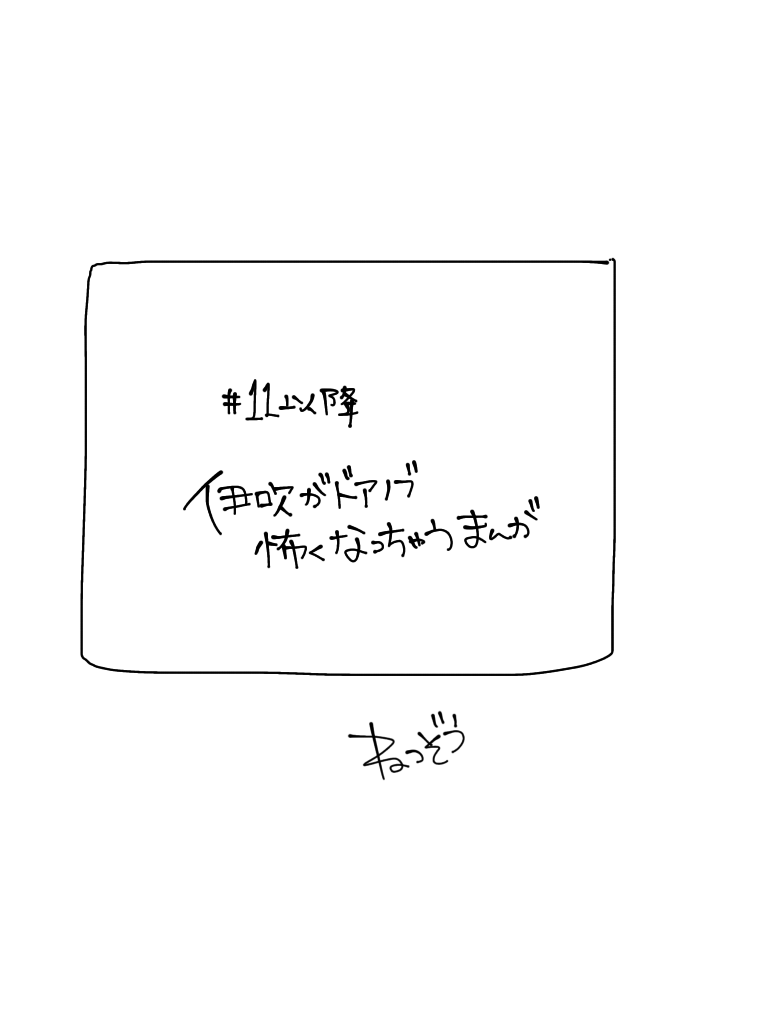 #11以降
伊吹がドアノブ
怖くなっちゃうまんが
ねつぞう